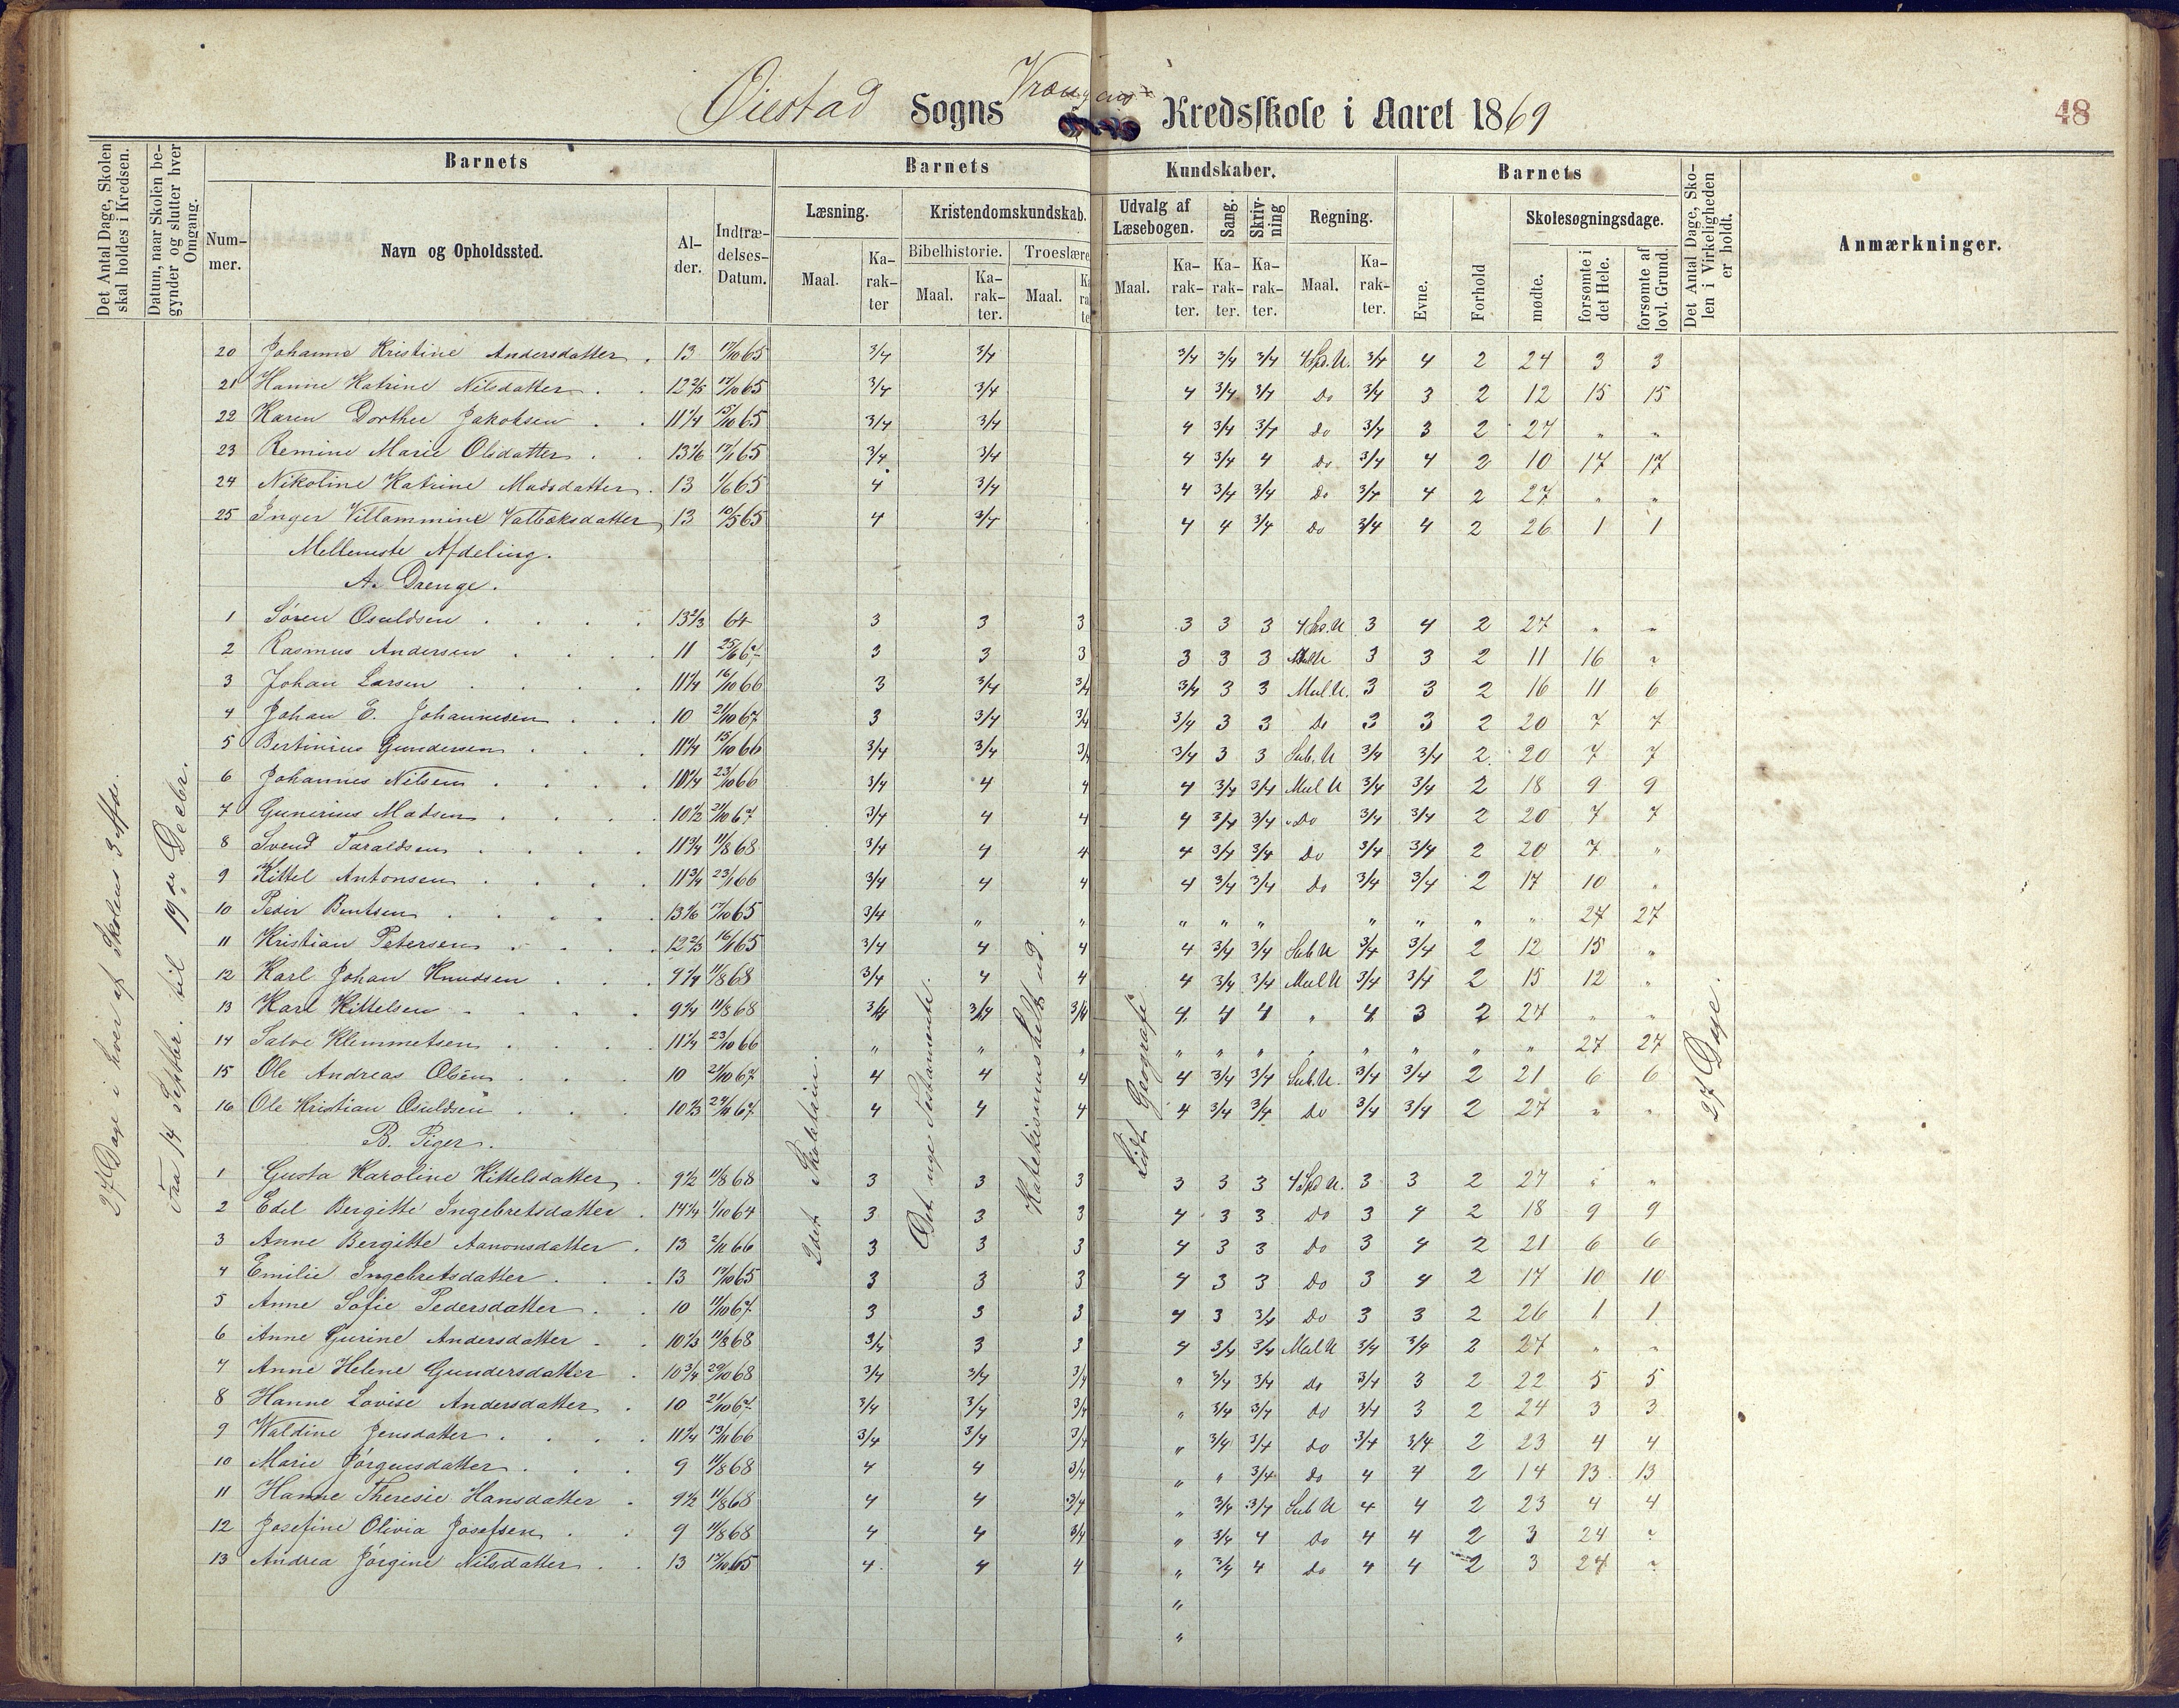 Øiestad Sogns Kredsskole i Aaret 1869
48
Det Antal Dage, Skolen skal holdes i Kredsen.
Datum, naar Skolen begynder og slutter hver Omgang.
Barnets
Nummer.
Navn og Opholdssted.
Alder.
Indtrædelses-Datum.
Barnets Kundskaber.
Læsning.
Maal.
Karakter
Kristendomskundskab.
Bibelhistorie.
Maal.
Karakter.
Troeslære
Maal.
Udvalg af Læsebogen.
Maal.
Karakter.
Sang.
Karakter.
Skrivning
Karakter.
Regning.
Maal.
Karakter.
Barnets
Evne.
Forhold
Skolesøgningsdage.
mødte.
forsømte i det Hele.
forsømte af lovl. Grund.
Det Antal Dage, Skolen i Virkeligheden er holdt.
Anmærkninger.
27 Dage i hver af Skolens 3 Afde.
Fra 14 Septbr. til 19de Decbr.
20 Johanne Kristine Andersdatter 13 17/10 65 3/4 3/4 3/4 3/4 3/4 4 Sp. U. 3/4 4 2 24 3 3
21 Hanne Katrine Nilsdatter 12 2/3 17/10 65 3/4 3/4 4 3/4 3/4 Do 3/4 3 2 12 15 15
22 Karen Dorthee Jakobsen 11 1/4 15/10 65 3/4 3/4 4 3/4 3/4 Do 3/4 3 2 27 " "
23 Remine Marie Olsdatter 13 1/6 65 3/4 3/4 4 3/4 4 Do 3/4 4 2 10 17 17
24 Nikoline Katrine Madsdatter 13 1/6 65 4 3/4 4 3/4 3/4 Do 3/4 4 2 27 " "
25 Inger Villammine 13 10/5 65 4 3/4 4 4 3/4 Do 3/4 4 2 26 1 1
Mellemste Afdeling.
A. Drenge.
1 Søren Osuldsen 13 2/3 64 3 3 3 3 3 3 4 Sp. U 3 4 2 27 " "
2 Rasmus Andersen 11 25/6 67 3 3 3 3 3 3 3 3 2 11 16 "
3 Johan Larsen 11 1/4 16/10 66 3 3/4 3/4 3/4 3 3 Mul U. 3 3 2 16 11 6
4 Johan E. Johannesen 10 21/10 67 3 3/4 3/4 3/4 3 3 Do 3 3 2 20 7 7
5 Bertinius Gundersen 11 1/4 15/10 66 3/4 3/4 3/4 3/4 3 3 Sub. U 3/4 3/4 2 20 7 7
6 Johannes Nilsen 23/10 66 3/4 4 4 4 3/4 3/4 Mul U 3/4 3/4 2 18 9 9
7 Gunerius Madsen 10 1/2 21/10 67 3/4 4 4 4 3/4 3/4 Do 3/4 3/4 2 20 7 7
8 Svend Taraldsen 11 3/4 11/8 68 3/4 4 4 4 3/4 3/4 Do 3/4 3/4 2 20 7 "
9 Kittel Antonsen 11 3/4 23/1 66 3/4 4 4 4 3/4 3/4 Do 3/4 3/4 2 17 10 "
10 Peder Bentsen 13 1/6 17/10 65 3/4 " " " " " " " " " 27 27
11 Kristian Petersen 12 2/3 16/1 65 3/4 4 4 4 3/4 3/4 Sub U 3/4 3/4 2 12 15 "
12 Karl Johan Knudsen 9 1/4 11/8 68 3/4 4 4 4 3/4 3/4 Mul U 3/4 3/4 2 15 12 "
13 Karl Kittelsen 9 1/4 11/8 68 3/4 3/4 3/4 4 4 4 " 4 3 2 27 " "
14 Salve Klemmetsen 11 1/4 23/10 66 " " " " " " " " " " " 27 27
15 Ole Andreas Olsen 10 21/10 67 4 4 4 4 3/4 3/4 Sub. U. 3/4 3/4 2 21 6 6
16 Ole Kristian Osuldsen 10 2/3 67 4 4 4 4 3/4 3/4 Do 3/4 3/4 2 27 " "
B. Piger.
1 Gusta Karoline Kittelsdatter 9 1/2 11/8 68 3 3 3 3 3 3 4 Sp U. 3 3 2 27 " "
2 Edel Bergitte Ingebretsdatter 14 1/4 1/10 64 3 3 3 4 3 3 Do 3 4 2 18 9 9
3 Anne Bergitte Aanonsdatter 13 2/11 66 3 3 3 4 3 3 Do 3 4 2 21 6 6
4 Emilie Ingebretsdatter 13 17/10 65 3 3 3 4 3 3 Do 3 4 2 17 10 10
5 Anne Sofie Pedersdatter 10 11/10 67 3 3 3 4 3 3/4 Do 3 3 2 26 1 1
6 Anne Gurine Andersdatter 10 1/3 11/8 68 3/4 3 3 4 3/4 3/4 Mul U 3/4 3/4 2 27 " "
7 Anne Helene Gundersdatter 10 3/4 29/10 68 3/4 3/4 3/4 " 3/4 3/4 Do 3/4 3 2 22 5 5
8 Hanne Lovise Andersdatter 10 21/10 67 3/4 3/4 3/4 " 3/4 3/4 Do 3/4 3 2 24 3 3
9 Waldine Jensdatter 11 1/4 13/11 66 3/4 3/4 3/4 " 3/4 3/4 Do 3/4 3/4 2 23 4 4
10 Marie Jørgensdatter 9 11/8 68 4 4 3/4 " " 3/4 Do 4 4 2 14 13 13
11 Hanne Theresie Hansdatter 9 1/2 11/8 68 4 4 3/4 " 3/4 3/4 Sub U 4 4 2 23 4 4
12 Josefine Olivia Josefsen 9 11/8 68 4 4 3/4 " 3/4 4 Do 4 4 2 3 24 "
13 Andrea Jørgine Nilsdatter 13 17/10 65 4 4 4 " 3/4 4 Do 4 4 2 3 24 "
"
"
Det nye Testamente.
Katekismus helt ud.
Lidt Geografi
27 Dage.